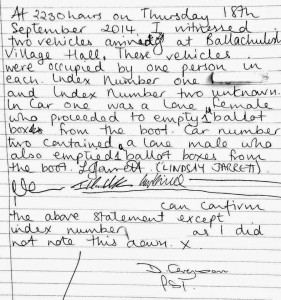 At 2230 hours on Thursday 18th
September 2014, I witnessed
two vehicles at Ballachulish
Village Hall. These vehicles
were occupied by one person in
each. Index Number one
and Index Number two unknown.
In Car one was a lone female
who proceeded to empty 1 ballot
box from the boot. Car number
two contained a lone male who
also emptied 1 ballot boxes from
the boot. L Jarrett (LINDSAY JARRETT)
I can confirm
the above statement except
index number as I did
not note this down. x